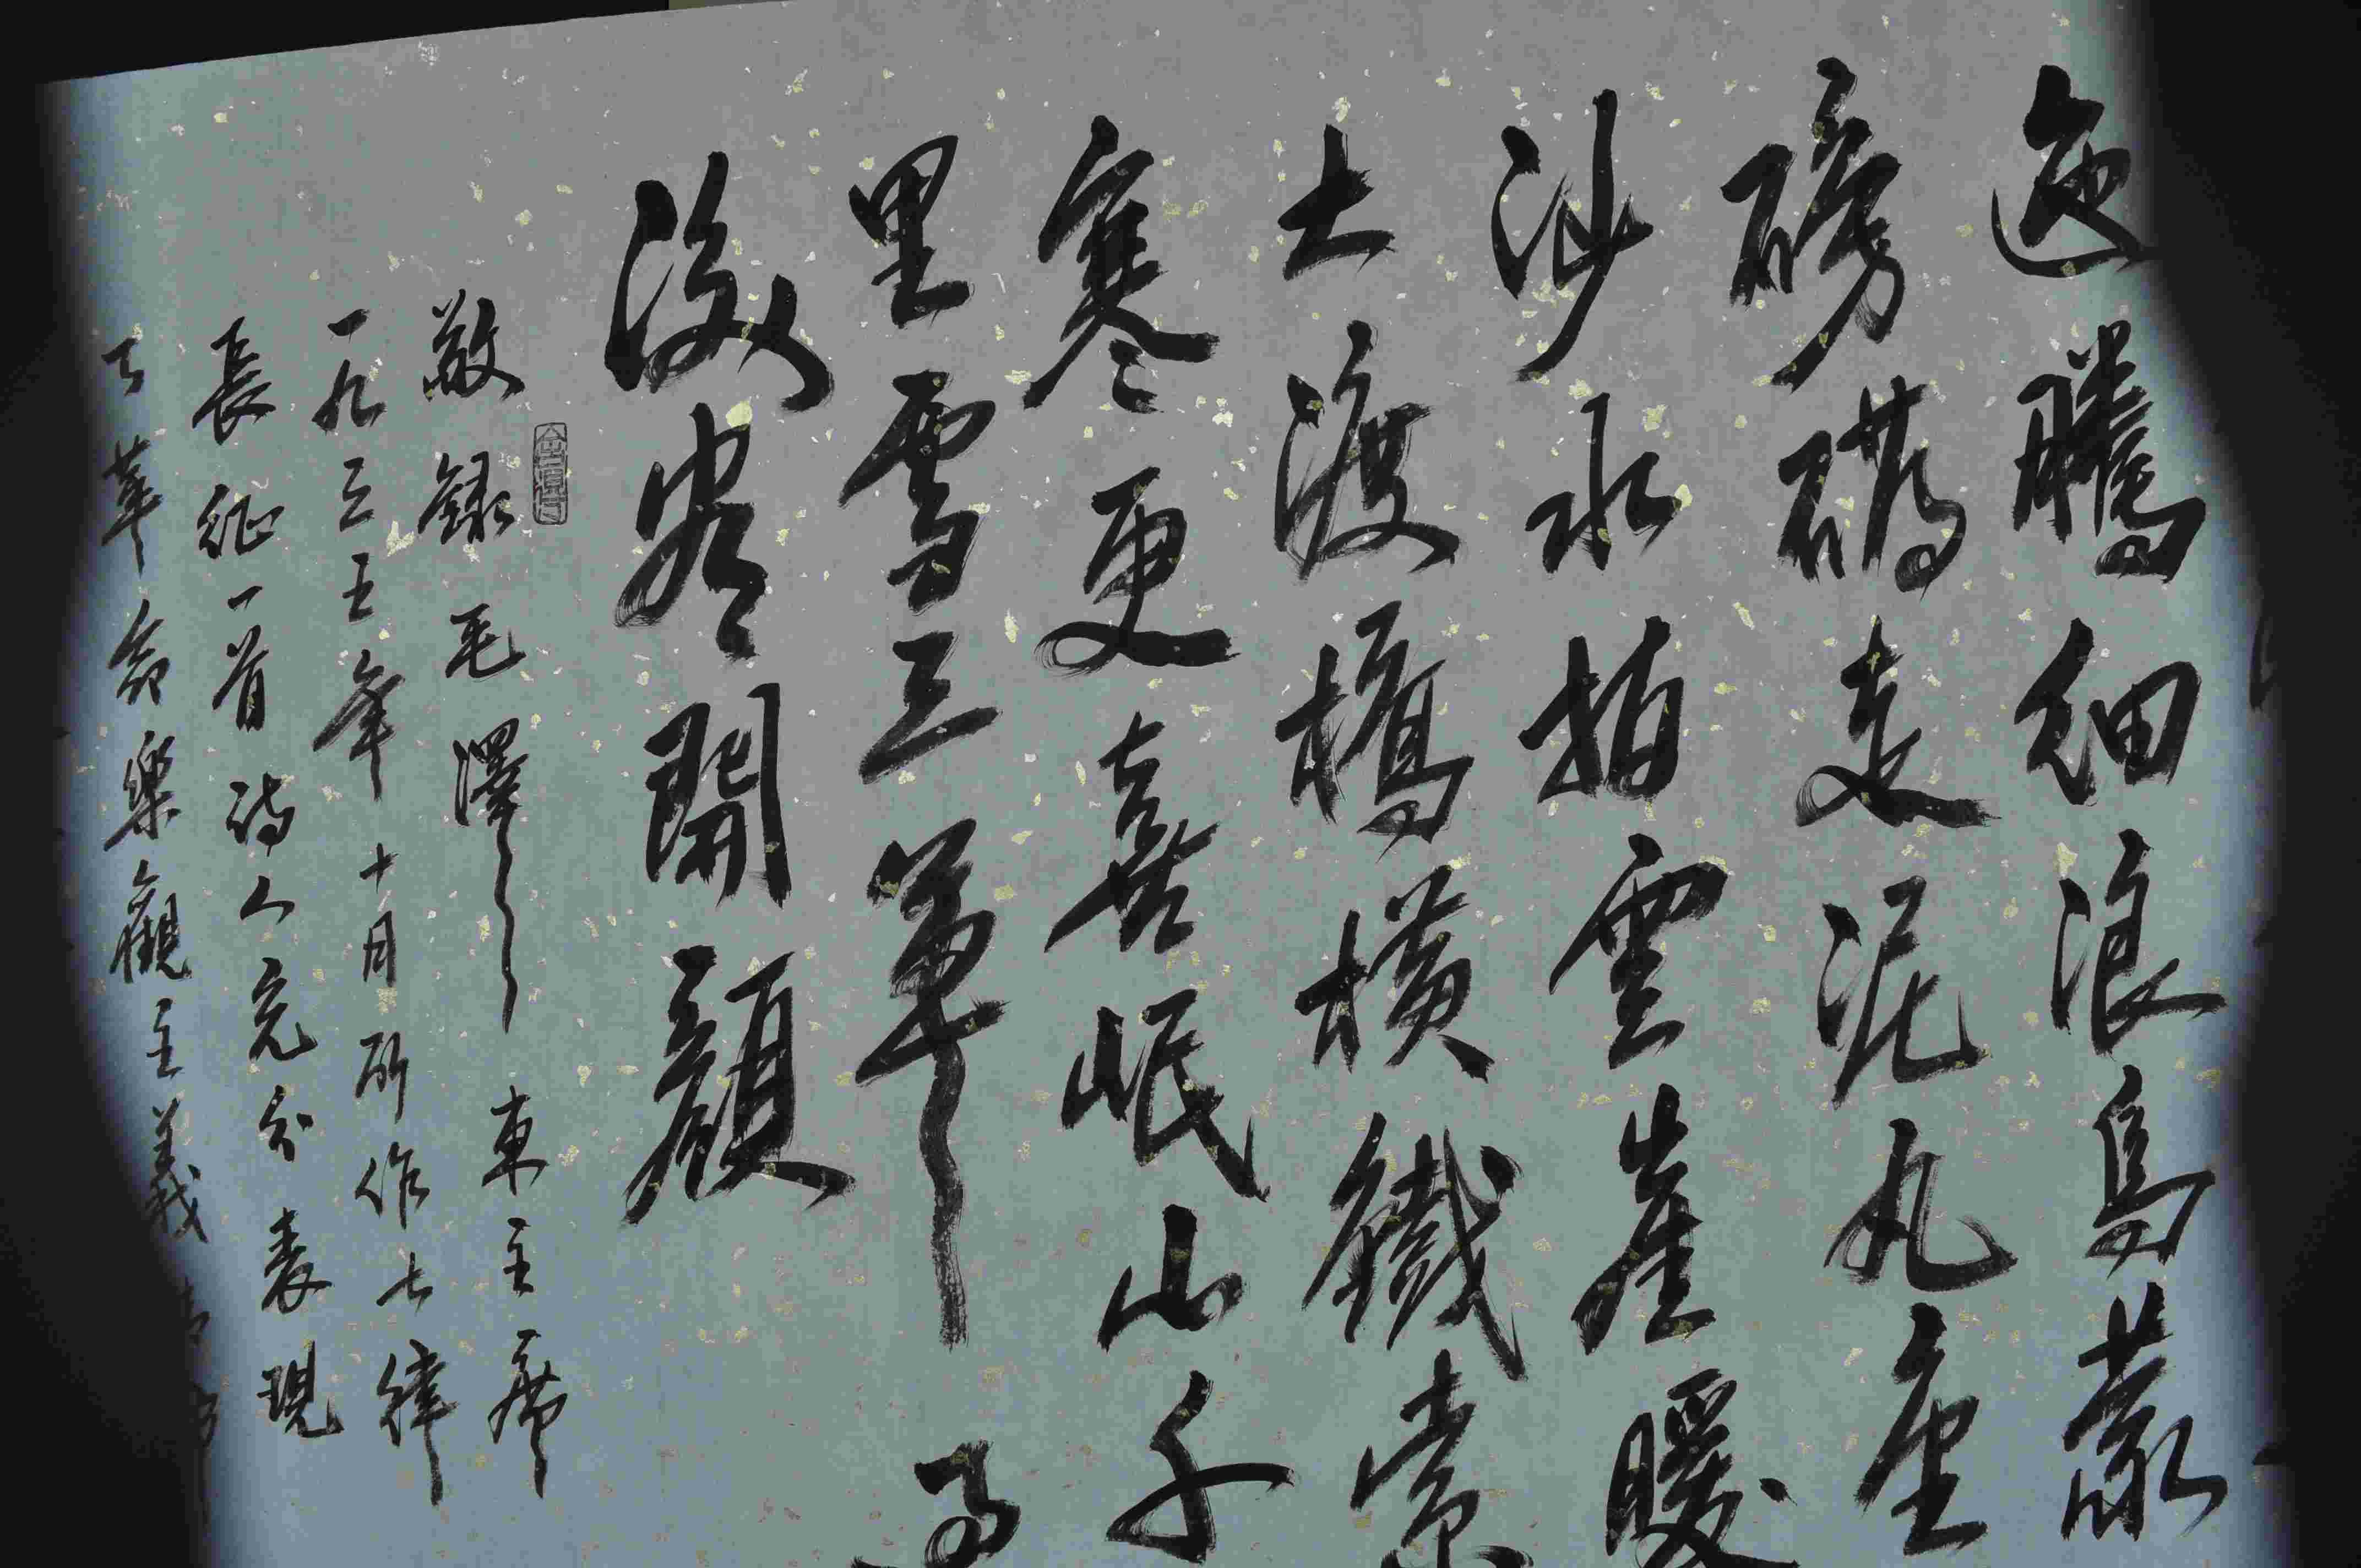 迤騰細浪烏蒙
磅礴走泥丸金
沙水拍雲崖暖
大渡橋橫鐵索
寒更喜岷山千
里雪三軍過
後盡開顏
敬錄毛澤東主席
一九三五年十月所作七律
長征一首詩人充分表現
了革命樂觀主義